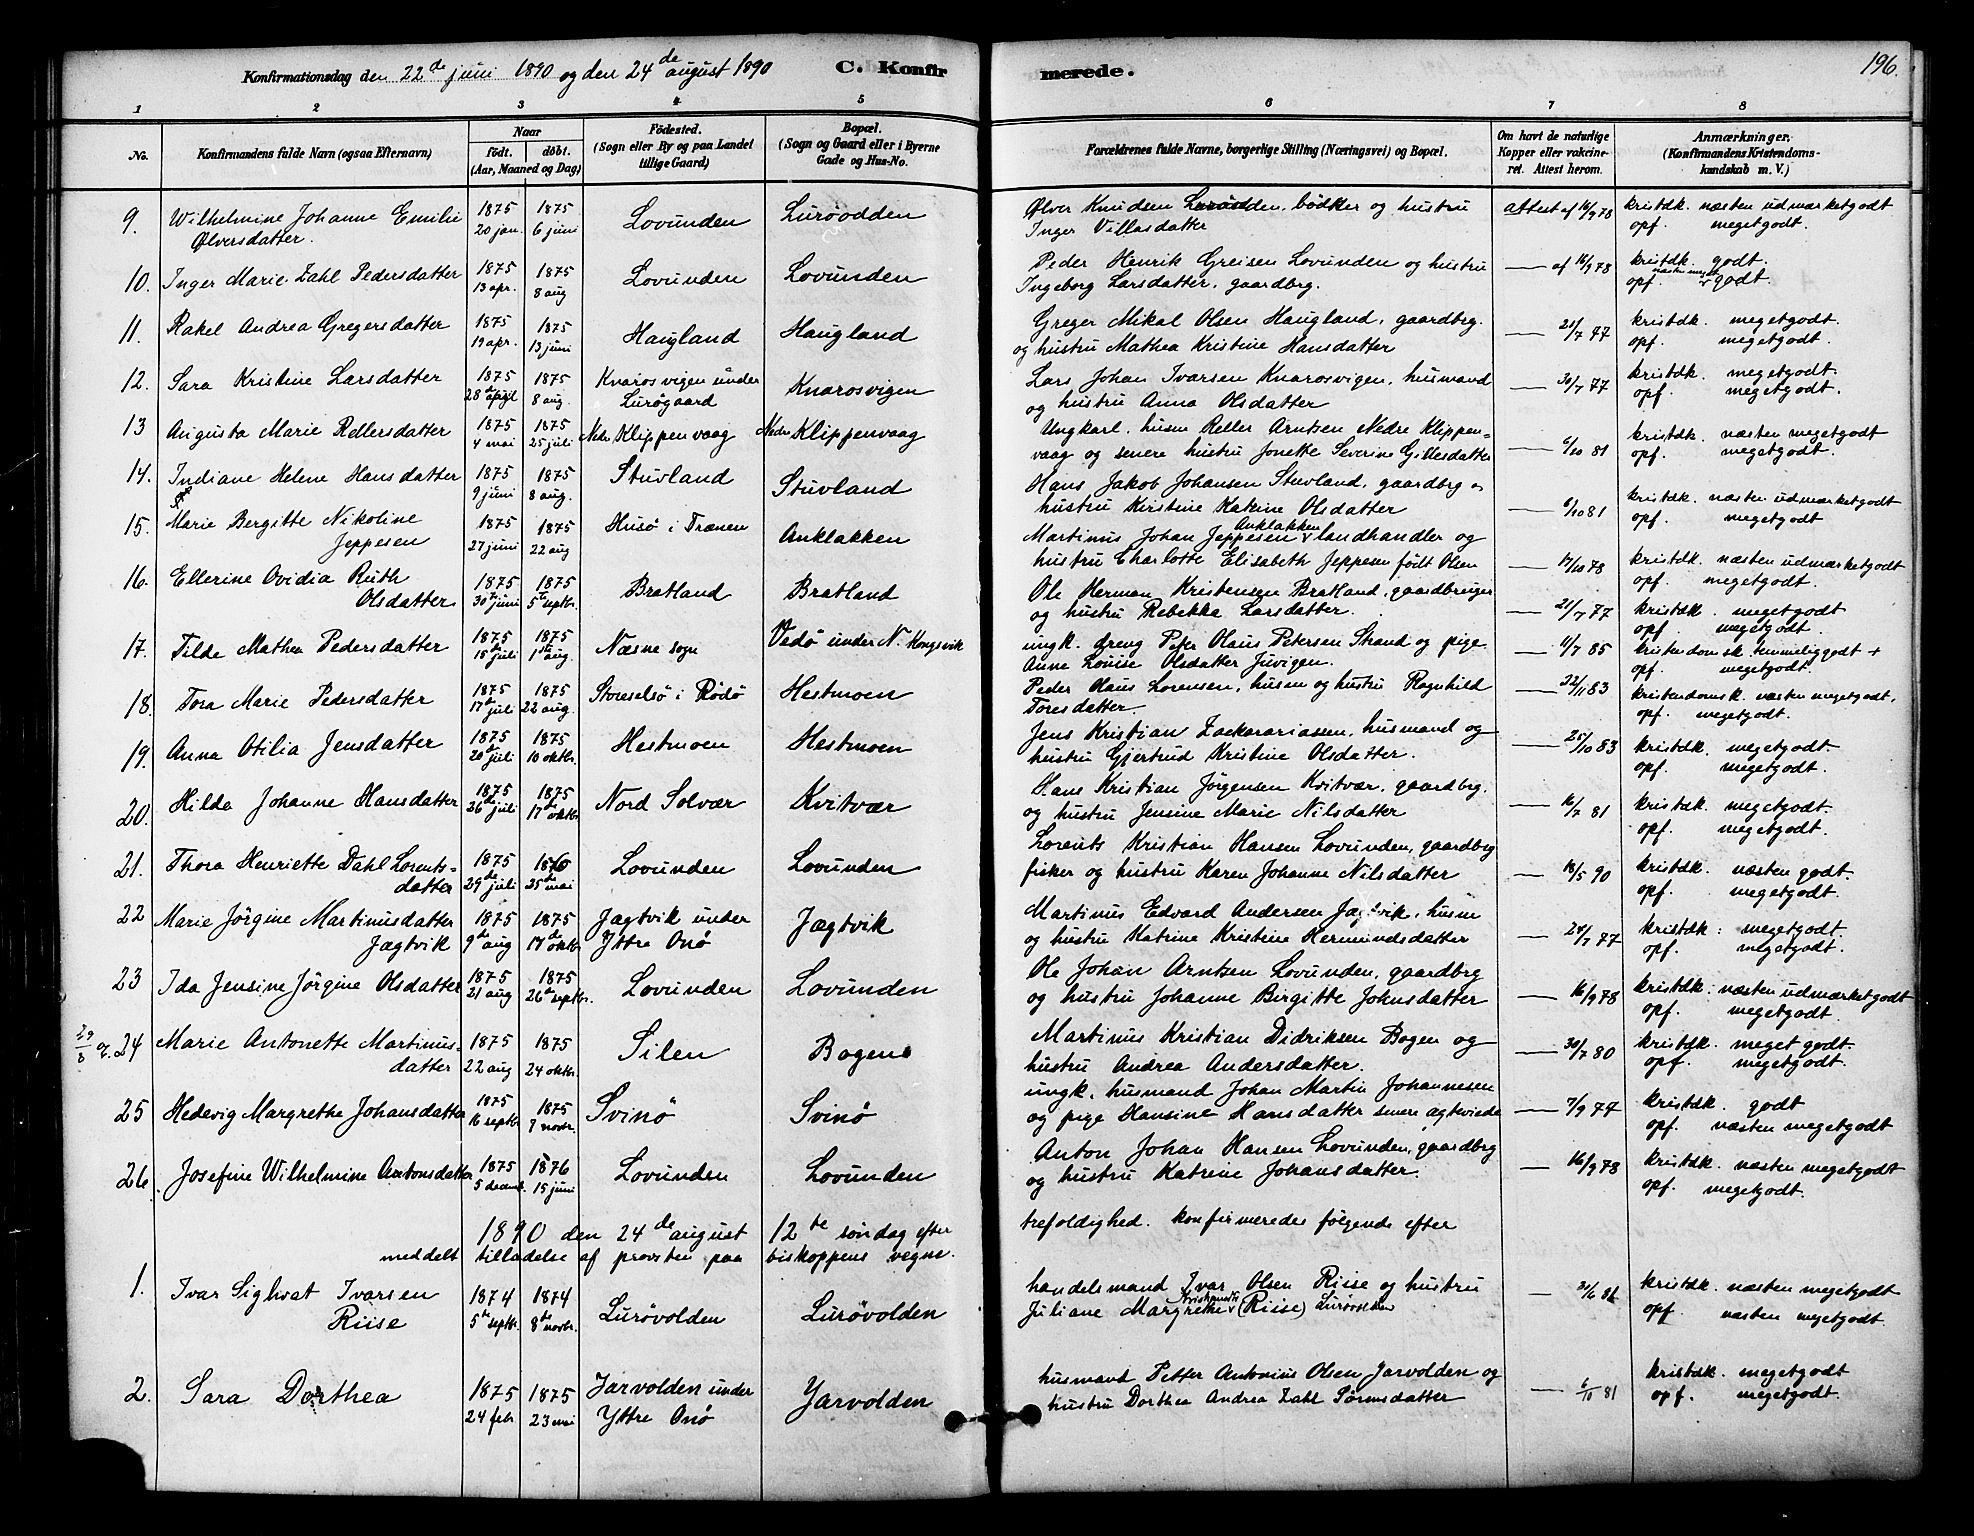 Konfirmationsdag den 22de juni 1890 og den 24de august 1890 C. Konfirmerede. 196.
1 2 3 4 5 6 7 8
No. Konfirmandens fulde Navn (ogsaa Efternavn) Naar födt. döbt. (Aar, Maaned og Dag) Födested. (Sogn eller By og paa Landet tillige Gaard) Bopæl. (Sogn og Gaard eller i Byerne Gade og Hus-No. Forældrenes fulde Navne, borgerlige Stilling (Næringsvei) og Bopæl. Om havt de naturlige Kopper eller vakcineret. Attest herom. Anmærkninger. (Konfirmandens Kristendomskundskab m. V.)
9. Wilhelmine Johanne Emilie 1875 1875 Lovunden Lurøodden Ølver Knudsen bødker og hustru attest af 16/9 78 kristdk. næsten udmærketgodt
Ølversdatter. 20 jan. 6 juni Inger Villasdatter opf. megetgodt.
10. Inger Marie Zahl Pedersdatter 1875 1875 Lovunden Lovunden Peder Henrik Greisen Lovunden og hustru — af 16/9 78 kristdk. godt.
13 apr. 8 aug Ingeborg Larsdatter, gaardbrg. opf. godt.
11. Rakel Andrea Gregersdatter 1875 1875 Haugland Haugland Greger Mikal Olsen Haugland, gaardbrg. — 21/7 77 kristdk. megetgodt.
19 apr. 13 juni og hustru Mathea Kristine Hansdatter opf. megetgodt.
12. Sara Kristine Larsdatter 1875 1875 Knarosvigen under Knarosvigen Lars Johan Ivarsen Knarosvigen, husmand — 30/7 77 kristdk. megetgodt.
28 april 8 aug. Lurögaard og hustru Anna Olsdatter opf. megetgodt.
13 Augusta Marie Rellersdatter 1875 1875 Nedr. Klippenvaag Nedre Klippenvaag Ungkarl. husm Reller Arntsen Nedre Klippen= — 6/10 81 kristdk. næsten megetgodt
4 mai 25 juli vaag og senere hustru Jonette Severine Gillesdatter opf. megetgodt.
14. Indiane Helene Hansdatter 1875 1875 Stuvland Stuvland Hans Jakob Johansen Stuvland, gaardbrg — 6/10 81 kristdk. næsten udmærketgodt
9 juni 8 aug. hustru Kristine Katrine Olsdatter opf. megetgodt
15. Marie Bergitte Nikoline 1875 1875 Husö i Trænen Anklakken Martinus Johan Jeppesen Anklakken landhandler og — 17/10 78 kristdk. næsten udmærketgodt
Jeppesen 27 juni 22 aug hustru Charlotte Elisabeth Jeppesen født Olsen opf. megetgodt.
16. Ellerine Ovidia Ruth 1875 1875 Bratland Bratland Ole Herman Kristensen Bratland, gaardbruger — 21/7 77 kristdk. megetgodt
Olsdatter 30te juni 5te septbr. og hustru Rebekka Larsdatter. opf. megetgodt.
17. Tilde Mathea Pedersdatter 1875 1875 Næsne sogn Vedö under N. Kongsvik ungk. dreng Peter Olaus Petersen Strand og pige — 11/7 85 kristendomsk. temmeliggodt +
18de juli 1ste aug. Anne Lovise Olsdatter Juvigen. opf. megetgodt.
18. Tora Marie Pedersdatter 1875 1875 Storselsö i Rödö Hestmoen Peder Olaus Lorensen, husm og hustru Ragnhild — 22/11 83 kristendomsk. næsten megetgodt,
17de juli 22 aug. Toresdatter opf. megetgodt.
19. Anna Otilia Jensdatter 1875 1875 Hestmoen Hestmoen Jens Kristian Zackarariassen, husmand og — 25/10 83 kristdk. megetgodt
20de juli 10 oktbr. hustru Gjertrud Kristine Olsdatter. opf. megetgodt.
20. Hilda Johanne Hansdatter 1875 1875 Nord Solvær Kvitvær Hans Kristian Jørgensen Kvitvær, gaardbrg. — 16/7 81 kristdk. megetgodt.
26de juli 17de oktbr og hustru Jensine Marie Nilsdatter opf. megetgodt.
21. Thora Henriette Dahl Lorents- 1875 1876 Lovunden Lovunden Lorents Kristian Hansen Lovunden, gaardbrg — 18/5 90 kristdk. næsten godt.
datter 29de juli 25de mai fisker og hustru Karen Johanne Nilsdatter opf. megetgodt.
22 Marie Jörgine Martinusdatter 1875 1875 Jægtvik under Jægtvik Martinus Edvard Andersen Jægtvik, husm — 24/7 77 kristdk: megetgodt.
Jægtvik 9de aug 17de oktbr. Yttre Onö og hustru Katrine Kristine Hermundsdatter opf. megetgodt.
23 Ida Jensine Jörgine Olsdatter 1875 1875 Lovunden Lovunden Ole Johan Arntsen Lovunden, gaardbrg — 16/9 78 kristdk: næsten udmærketgodt
21 aug 26de septbr. og hustru Johanne Birgitte Johnsdatter opf. megetgodt.
24 Marie Antonette Martinus- 1875 1875 Silen Bogen Martinus Kristian Didriksen Bogen og — 30/7 80 kristdk. meget godt.
datter 22 aug 24 oktbr. hustru Andrea Andersdatter. opf. megetgodt.
25 Hedevig Margrethe Johansdatter 1875 1875 Svinö Svinö ungk. husmand Johan Martin Johannesen — 7/9 77 kristdk. godt
16 septbr 7 novbr. og pige Hansine Hansdatter senere ægteviede opf. næsten megetgodt
26. Josefine Wilhelmine Antonsdatter 1875 1876 Lovunden Lovunden Anton Johan Hansen Lovunden, gaardbrg — 16/9 78 kristdk. næsten megetgodt
5 decmb. 15 juni og hustru Katrine Johansdatter. opf. megetgodt.
1890 den 24de august 12te söndag efter trefoldighed. konfirmeredes følgende efter
meddelt tilladelse af provsten paa biskoppens vegne.
1. Ivar Sighvat Ivarsen 1874 1874 LuröVolden LuröVolden handelsmand Ivar Olsen Riise og hustru — kristdk. næsten megetgodt
Riise 5te septbr. 8de novbr. Juliane Margrethe (Riise) opf. næsten megetgodt.
2. Sara Dorthea 1875 1875 Jarvolden under Yarvolden husmand Petter Antonius Olsen Jarvolden og — 6/10 81 kristdk. megetgodt
24 febr 23 mai Yttre Onö hustru Dorthea Andrea Zahl Sörensdatter opf. megetgodt.